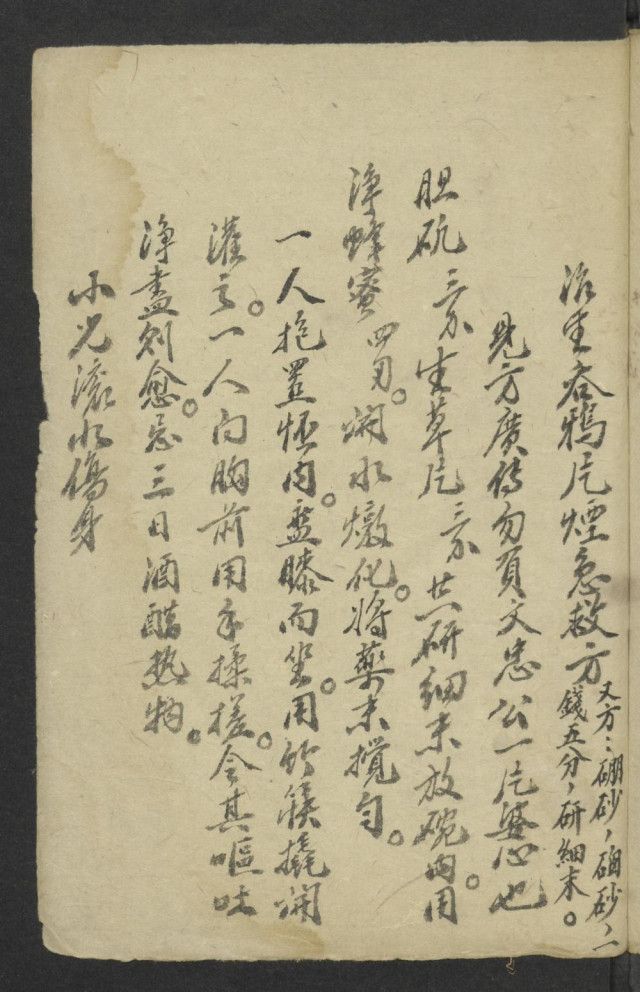 治生吞鴉片煙急救方
又方：硼砂，硇砂，一
錢五分，研細末。
見方廣傳勿負文忠公一片婆心也
胆矾三分生草片三分共研細末放碗内。用
淨蜂蜜四刃。開水燉化。將藥末攪勻。
一人抱置怀内。盤膝而坐。用竹筷撬開
灌之。一人向胸前用手揉搓。令其嘔吐
淨盡则愈。忌三日酒醋熱物。
小児滚水傷身